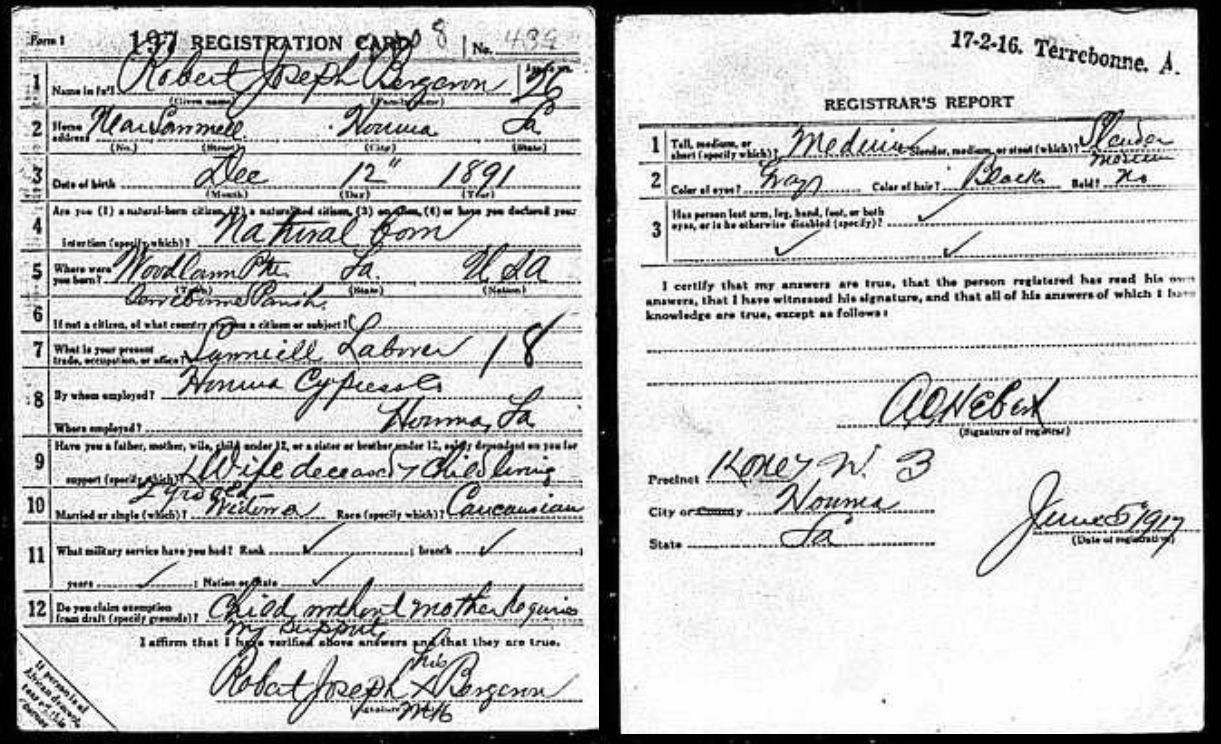 Form 1 197 REGISTRATION CARD 8 No. 484
1 Name in full Robert Joseph Bergeron 26
(Given name) (Family name)
2 Home address Near Houma La
(No.) (Street) (City) (State)
3 Date of birth Dec 12" 1891
(Month) (Day) (Year)
4 Are you (1) a natural-born citizen, (2) a naturalized citizen, (3) an alien, (4) or have you declared your
intention (specify which)? Natural born
5 Where were you born? Woodlawn Pltn La. U S A
(Town) (State) (Nation)
Terrebonne Parish
6 If not a citizen, of what country are you a citizen or subject?
7 What is your present trade, occupation, or office? Laborer 18
8 By whom employed? Houma Cypress Co
Where employed? Houma, La
9 Have you a father, mother, wife, child under 12, or a sister or brother under 12, solely dependent on you for
support (specify which)? Wife deceased 1 child living
2 yrs old
10 Married or single (which)? Widower Race (specify which)? Caucausian
11 What military service have you had? Rank ✓ ; branch ✓ ;
years ✓ ; Nation or State ✓
12 Do you claim exemption from draft (specify grounds)? Child without mother requires
my support
I affirm that I have verified above answers and that they are true.
his
Robert Joseph X Bergeron
(Signature or mark)
mk
If person is of African descent, tear off this corner
17-2-16. Terrebonne. A.
REGISTRAR'S REPORT
1 Tall, medium, or short (specify which)? Medium Slender, medium, or stout (which)? Slender
medium
2 Color of eyes? Gray Color of hair? Black Bald? no
3 Has person lost arm, leg, hand, foot, or both eyes, or is he otherwise disabled (specify)? ✓
✓ ✓
I certify that my answers are true, that the person registered has read his own
answers, that I have witnessed his signature, and that all of his answers of which I have
knowledge are true, except as follows:
A O Hebert
(Signature of registrar)
Precinct W. 3
City or County Houma
State La
June 5 1917
(Date of registration)